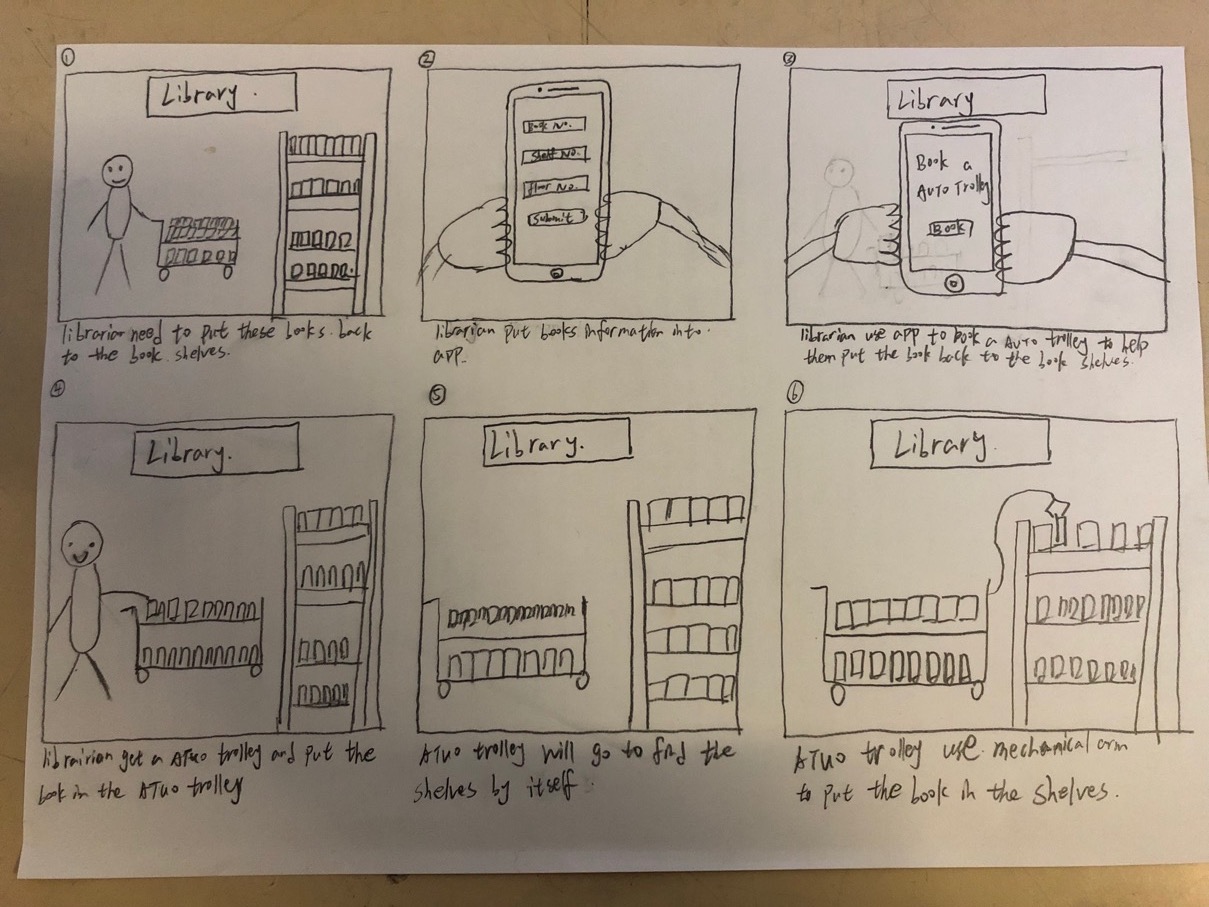 ①
Library.
librarian need to put these books. back
to the book shelves.
②
Book No.
Shelf No.
floor No.
Submit
librarian put books information into.
app.
③
Library
Book a
Auto Trolley
Book
librarian use app to book a Auto trolley to help
them put the book back to the book shelves.
④
Library.
librairion get a ATuo trolley and put the
book in the ATuo trolley
⑤
Library.
ATuo trolley will go to find the
shelves by itself.
⑥
Library
ATuo trolley use mechanical arm
to put the book in the shelves.